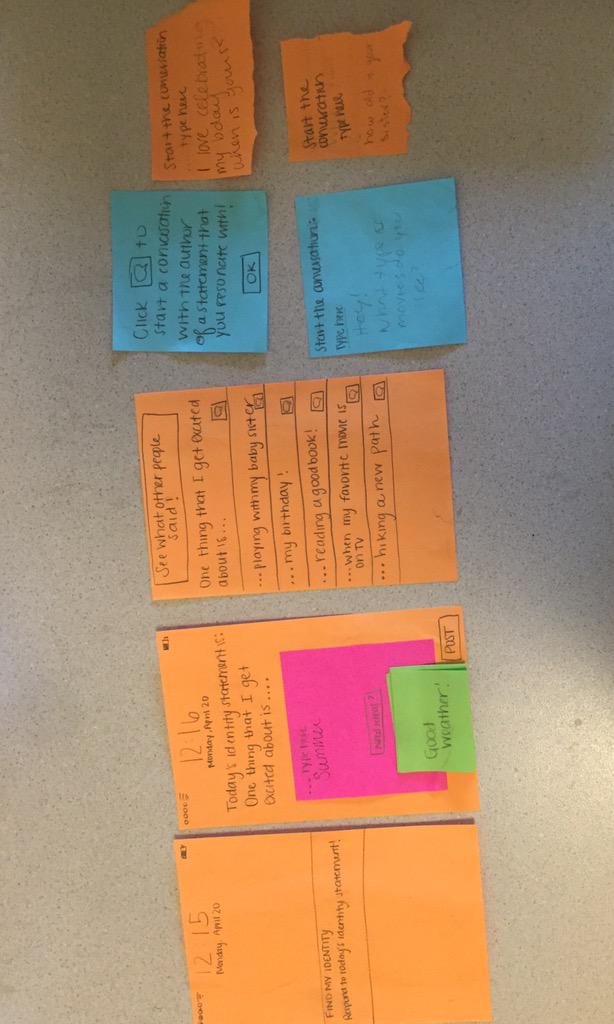 12:15
Monday, April 20
FIND MY IDENTITY
Respond to today's identity statement!
12:16
Monday, April 20
Today's identity statement is:
One thing that I get
excited about is....
...type here
Summer
Need help?
Good
Weather!
POST
See what other people
said!
One thing that I get excited
about is...
...playing with my baby sister
...my birthday!
...reading a good book!
...when my favorite movie is
on TV
...hiking a new path
Click to
start a conversation
with the author
of a statement that
you resonate with!
OK
Start the conversation:
Type here
Hey!
What type of
movies do you
like?
Start the conversation
type here
I love celebrating
my bday
when is yours?
Start the
conversation
type here
how old is your
sister?